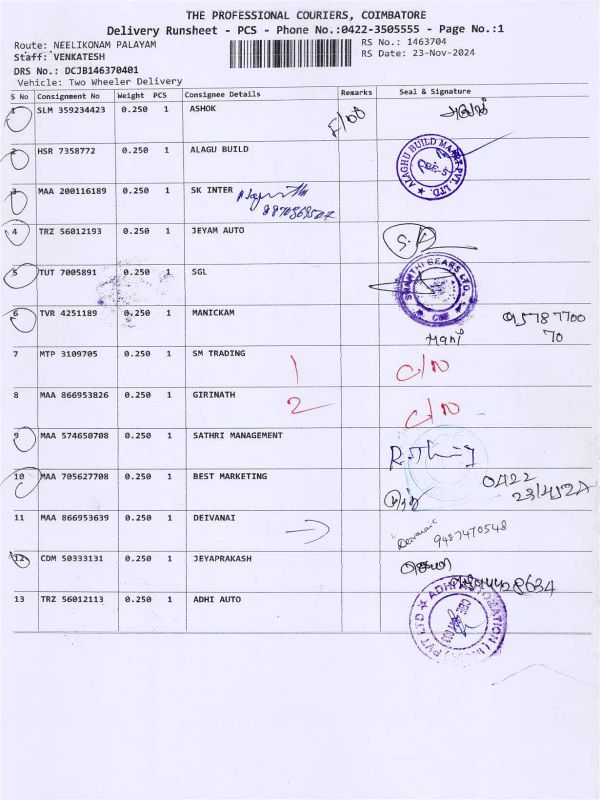 THE PROFESSIONAL COURIERS, COIMBATORE
Delivery Runsheet - PCS - Phone No.:0422-3505555 - Page No.:1
Route: NEELIKONAM PALAYAM
RS No.: 1463704
Staff: VENKATESH
RS Date: 23-Nov-2024
DRS No.: DCJB146370401
Vehicle: Two Wheeler Delivery
S No Consignment No Weight PCS Consignee Details Remarks Seal & Signature
1 SLM 359234423 0.250 1 ASHOK
2 HSR 7358772 0.250 1 ALAGU BUILD
3 MAA 200116189 0.250 1 SK INTER
4 TRZ 56012193 0.250 1 JEYAM AUTO S.K
5 TUT 7005891 0.250 1 SGL SHANTHI GEARS LTD. CBE
6 TVR 4251189 0.250 1 MANICKAM Mani 95787700
70
7 MTP 3109705 0.250 1 SM TRADING 1 C/N
8 MAA 866953826 0.250 1 GIRINATH 2 C/N
9 MAA 574650708 0.250 1 SATHRI MANAGEMENT
10 MAA 705627708 0.250 1 BEST MARKETING 0422
11 MAA 866953639 0.250 1 DEIVANAI 9487470548
12 CDM 50333131 0.250 1 JEYAPRAKASH
13 TRZ 56012113 0.250 1 ADHI AUTO